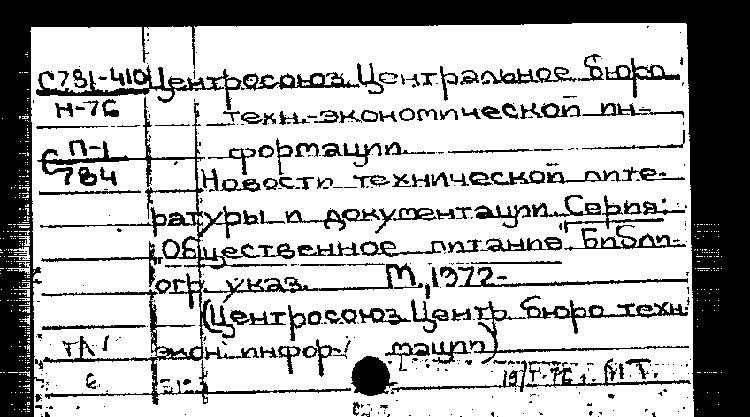 С781-410 Центросоюз. Центральное бюро
Н-76 техн.-экономической ин-
П-1 формации.
С 784 Новости технической лите-
ратуры и документации. Серия:
"Общественное питание". Библи-
огр. указ. М., 1972-
(Центросоюз. Центр. бюро техн.
экон. инфор- мации)
6 19/I-76 г. МТ.